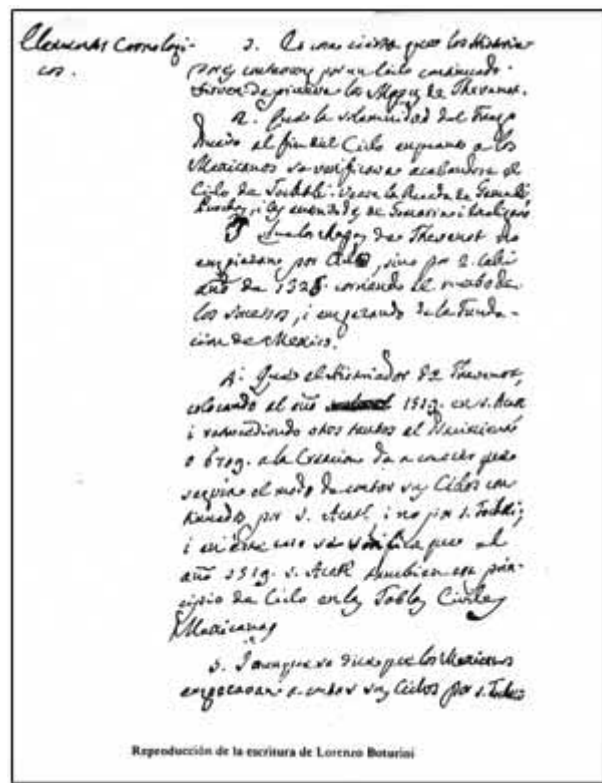 Elementos Cronologi-
cos.
1. Es cosa cierta que los Historia-
contaron por un Ciclo continuado.
sirven de prueva los Mapas de Thevenot.
2. Que la solemnidad del Fuego
Nuevo al fin del Ciclo a los
Mexicanos se verificava acabandose el
Ciclo de Tochtli. Vease la Rueda de Gemelli,
i
3 Que los Mapas de Thevenot no
empiezan por sino por 2. Calli
año de 1325. corriendo el
los sucessos, i empezando de la Funda-
cion de Mexico.
4. Que el Historiador de Thevenot,
colocando el año 1519. en 1. Acatl
i retrocediendo otros tantos al
o a la Creacion da a conocer que
el modo de contar sus Ciclos con-
por 1. Acatl, i no por 1. Tochtli,
i en este caso se verifica que el
año 1519. 1. Acatl tambien era prin-
cipio de Ciclo en las Tablas Civiles
Mexicanas
5. I aunque se dice que los Mexicanos
empezavan a contar sus Ciclos por 1. Tochtli
Reproducción de la escritura de Lorenzo Boturini